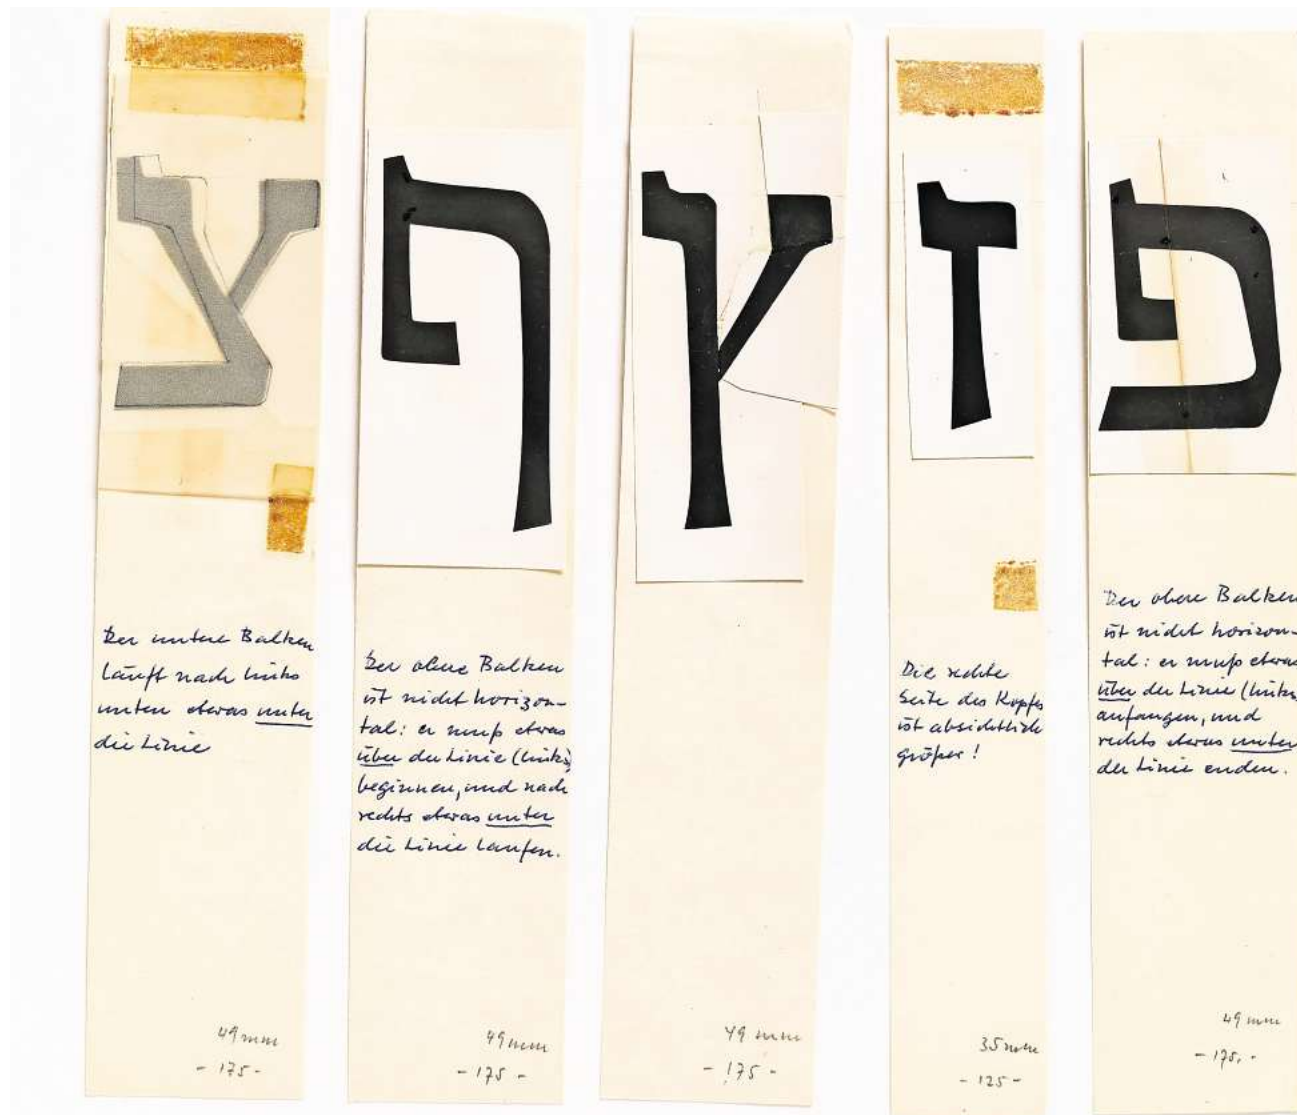 צ
Der untere Balken
läuft nach links
unten etwas unter
die Linie
49 mm
- 175 -
ף
Der obere Balken
ist nicht horizon-
tal: er muß etwas
über der Linie (links)
beginnen, und nach
rechts etwas unter
die Linie laufen.
49 mm
- 175 -
ץ
49 mm
- 175 -
ז
Die rechte
Seite des Kopfes
ist absichtlich
größer!
35 mm
- 125 -
פ
Der obere Balken
ist nicht horizon-
tal: er muß etwas
über der Linie (links
anfangen, und
rechts etwas unter
der Linie enden.
49 mm
- 175. -